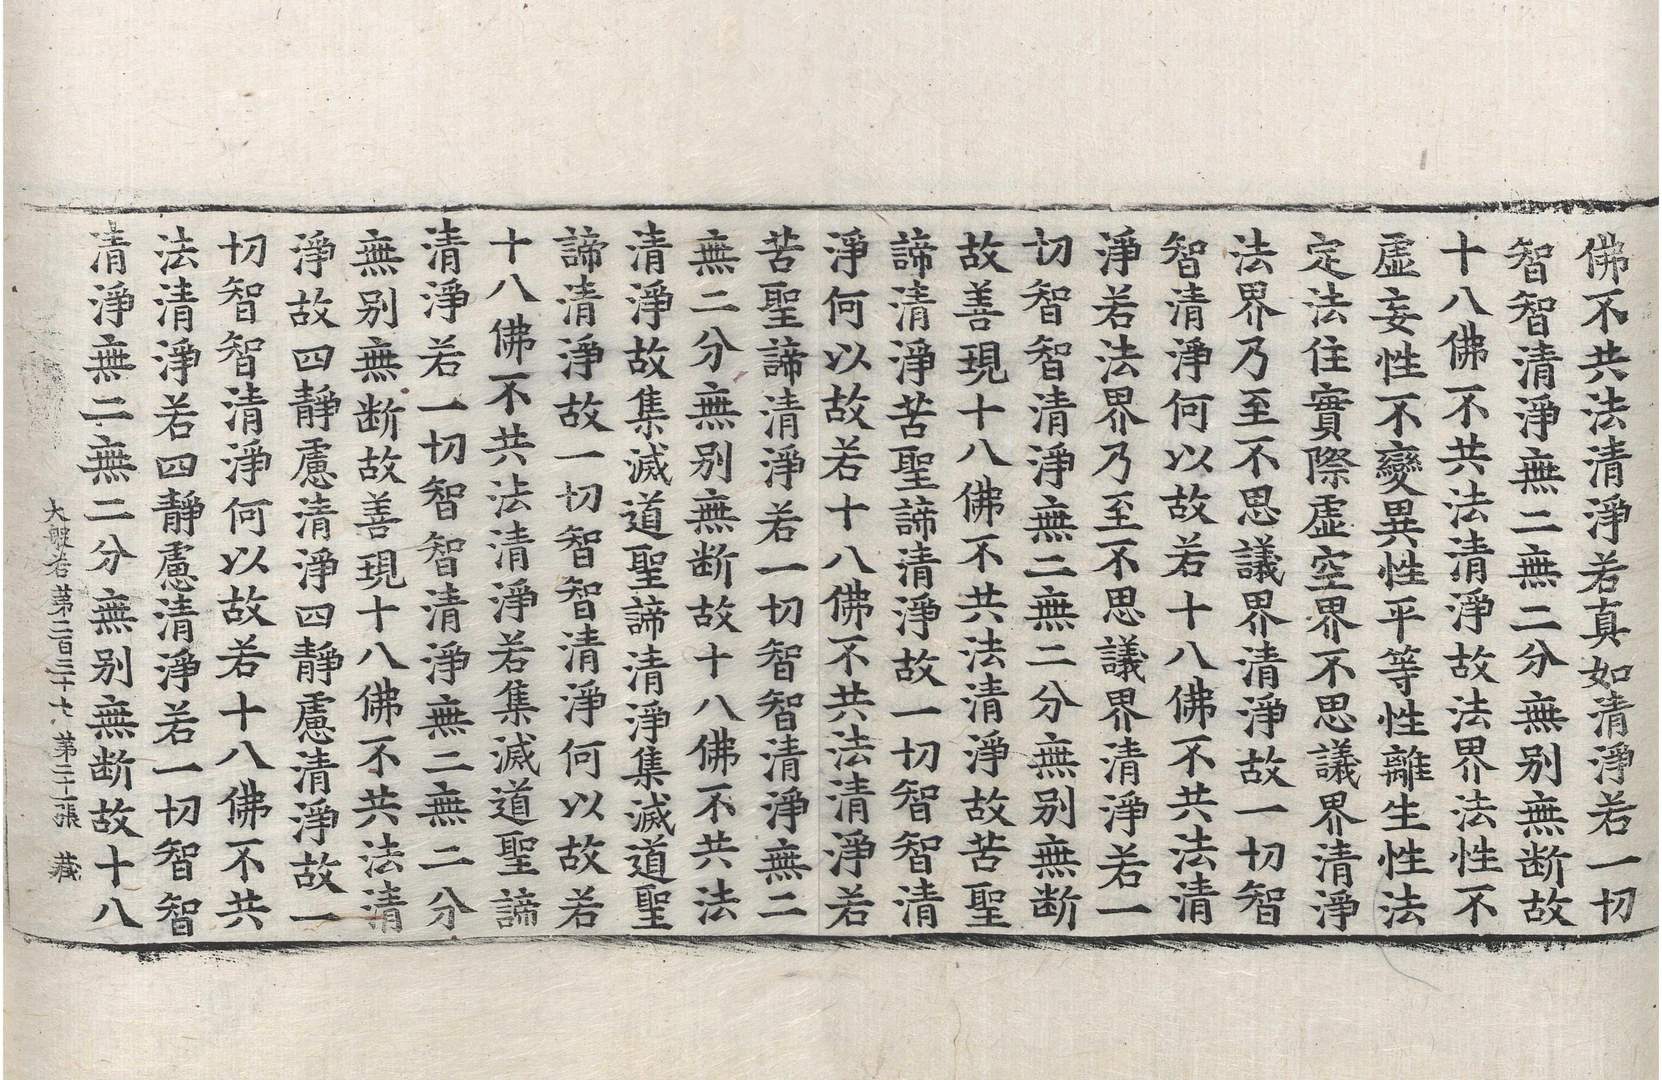 佛不共法清淨若真如清淨若一切
智智清淨無二無二分無别無断故
十八佛不共法清淨故法界法性不
虛妄性不變異性平等性離生性法
定法住實際虛空界不思議界清淨
法界乃至不思議界清淨故一切智
智清淨何以故若十八佛不共法清
淨若法界乃至不思議界清淨若一
切智智清淨無二無二分無别無断
故善現十八佛不共法清淨故苦聖
諦清淨苦聖諦清淨故一切智智清
淨何以故若十八佛不共法清淨若
苦聖諦清淨若一切智智清淨無二
無二分無别無断故十八佛不共法
清淨故集滅道聖諦清淨集滅道聖
諦清淨故一切智智清淨何以故若
十八佛不共法清淨若集滅道聖諦
清淨若一切智智清淨無二無二分
無别無断故善現十八佛不共法清
淨故四靜慮清淨四靜慮清淨故一
切智智清淨何以故若十八佛不共
法清淨若四靜慮清淨若一切智智
清淨無二無二分無别無断故十八
大般若苐二百 苐 張 藏